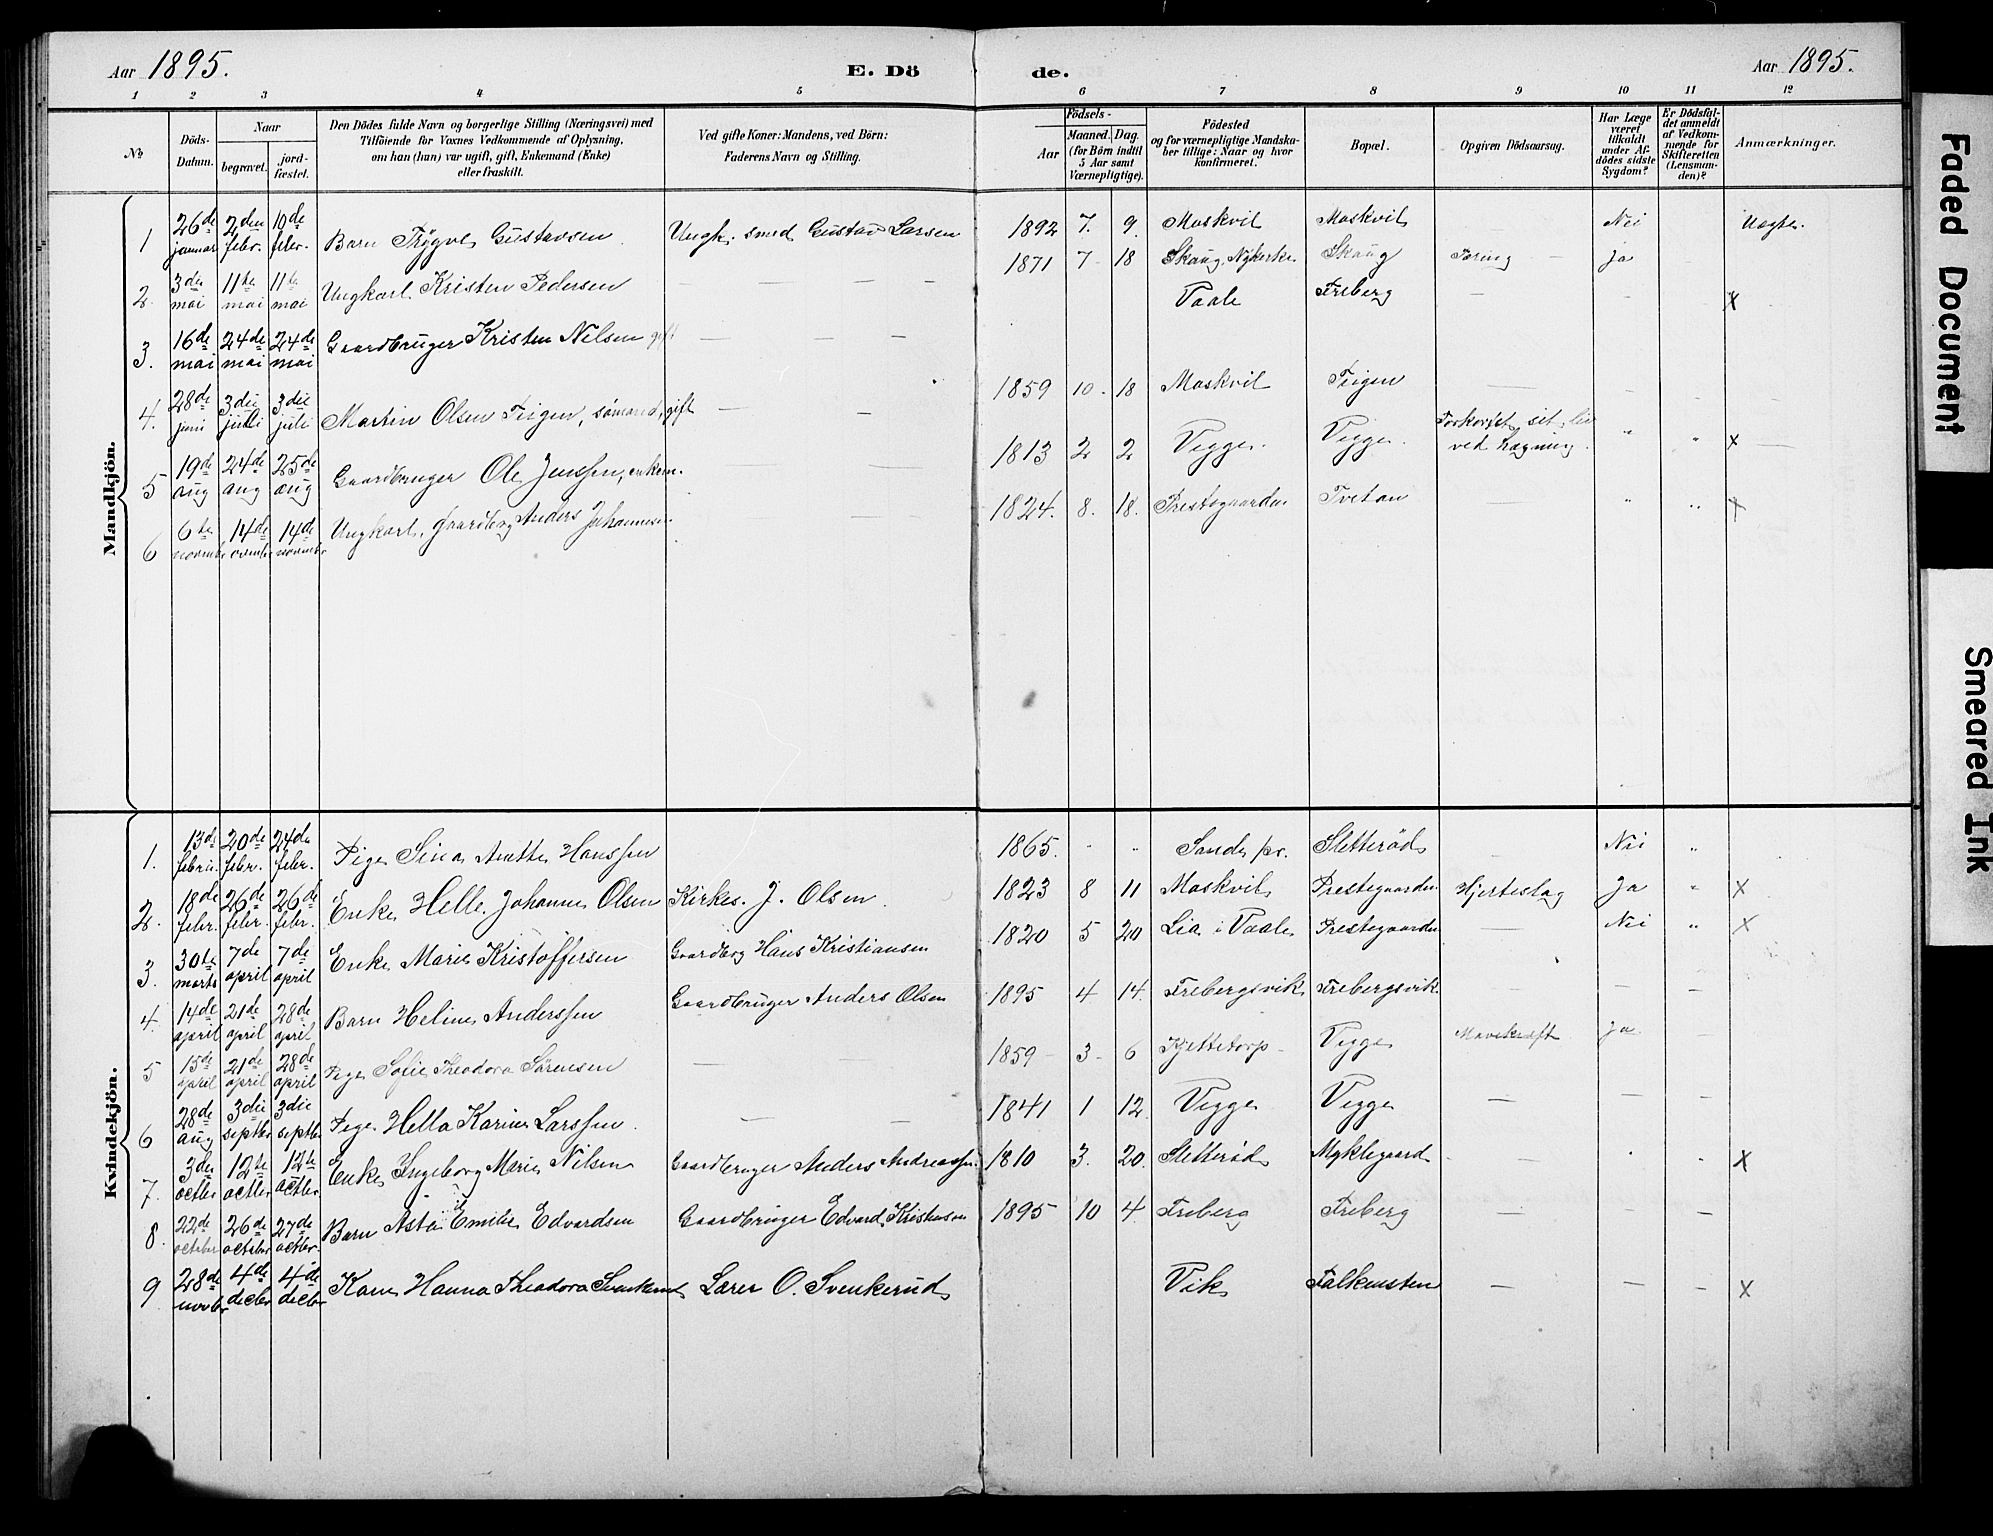 Aar 1895.
E. Dö
de.
Aar 1895.
1 2 3 4 5 6 7 8 9 10 11 12
No
Döds-Datum.
Naar
begravet.
jord-fæstet.
Den Dödes fulde Navn og borgerlige Stilling (Næringsvei) med
Tilföiende for Voxnes Vedkommende af Oplysning,
om han (hun) var ugift, gift, Enkemand (Enke)
eller fraskilt.
Ved gifte Koner: Mandens, ved Börn:
Faderens Navn og Stilling.
Födsels-
Aar
Maaned. Dag.
(for Börn indtil
5 Aar samt
Værnepligtige).
Födested
og for værnepligtige Mandska-
ber tillige: Naar og hvor
konfirmeret.
Bopæl.
Opgiven Dödsaarsag.
Har Læge
været
tilkaldt
under Af-
dödes sidste
Sygdom?
Er Dödsfal-
det anmeldt
af Vedkom-
mende for
Skifteretten
(Lensman-
den)?
Anmærkninger.
Mandkjön.
1 26de januar 2den febr. 10de febr. Barn Trygve Gustavsen Ungk. smed Gustav Larsen 1892 7. 9. Moskvil Moskvil Nei Uegte.
2. 3die mai 11te mai 11te mai Ungkarl Kristen Pedersen — — — 1871 7 18 Skaug, Nykirke Skaug Tæring — ja
3. 16de mai 24de mai 24de mai Gaardbruger Kristen Nilsen gift — — — Vaale Freberg — x
4. 28de juni 3die juli 3die juli Martin Olsen Teigen, sömand, gift — — 1859 10 18 Moskvil Teigen —
5 19de aug 24de aug 25de aug Gaardbruger Ole Jenssen, enkem. 1813 2 2 Vegge. Vegge. Forkortet sit liv ved hægning. " " x —
6 6te november 14de november 14de november Ungkarl, gaardbrg Anders Johannesen — 1824. 8. 18. Prestegaarden Tvetan — " " x
Kvindekjön.
1. 13de februar. 20de febr. 24de febr. Pige Sina Anette Hanssen 1865. " " Sande pr. Sletteröd — Nei "
2. 18de febr. 26de febr. 26de febr. Enke Helle Johanne Olsen Kirkes. J. Olsen. 1823 8 11 Moskvil Prestegaarden Hjerteslag Ja " x
3. 30te marts 7de april 7de april Enke Marie Kristoffersen Gaardbrg Hans Kristiansen 1820 5 20 Lia i Vaale Prestegaarden — Nei " x
4. 14de april 21de april 28de april Barn Heline Anderssen Gaardbruger Anders Olsen 1895 4 14. Frebergsvik Frebergsvik. — — —
5 15de april 21de april 28de april Pige Sofie Theodora Sörensen — — 1859 3 6 Kjettetorp Vegge Mavekræft Ja —
6 28de aug 3die septbr 3die septbr Pige Hella Karine Larssen. — — 1841 1 12. Vegge Vegge — — —
7. 3die octbr 12te octbr 12te octbr Enke Ingeborg Marie Nilsen Gaardbruger Anders Andreassen. 1810 3. 20. Sletteröd Myklegaard — x
8. 22de october 26de october 27de octbr. Barn Asta Emilie Edvardsen Gaardbruger Edvard Kristensen 1895 10 4. Freberg Freberg — — —
9 28de novbr 4de decbr 4de decbr Kone Hanna Theodora Svenkerud Lærer O. Svenkerud Vik Falkensten — — — x
Faded Document
Smeared Ink